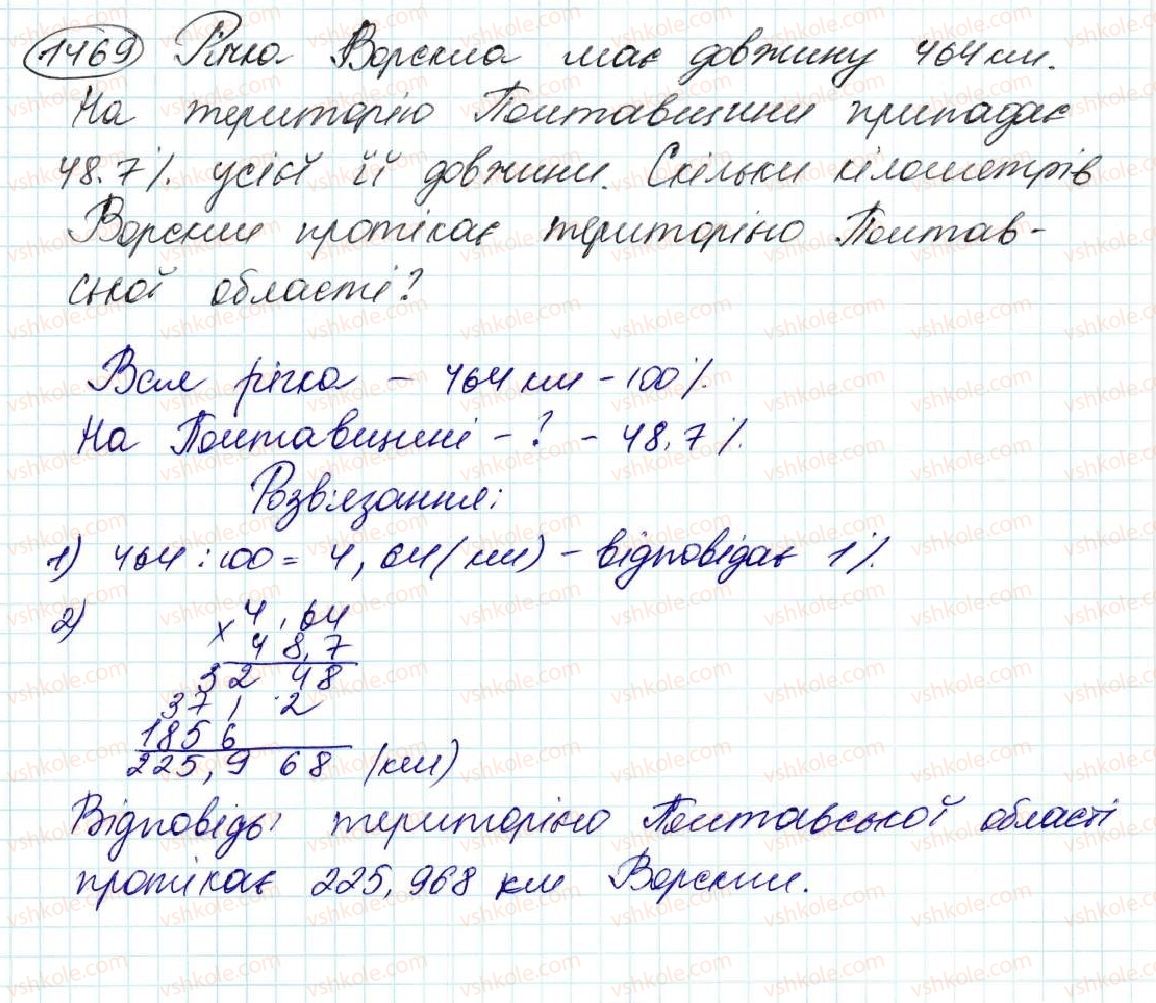 1469 Річка Ворскла має довжину 464 км.
На територію Полтавщини припадає
48.7% усієї її довжини. Скільки кілометрів
Ворскли протікає територією Полтав-
ської області?
Вся річка – 464 км – 100%
На Полтавщині – ? – 48,7%
Розв'язання:
1) 464 : 100 = 4,64 (км) – відповідає 1%.
2) × 4,64
48,7
32 48
371 2
1856
225,968 (км)
Відповідь: територією Полтавської області
протікає 225,968 км Ворскли.